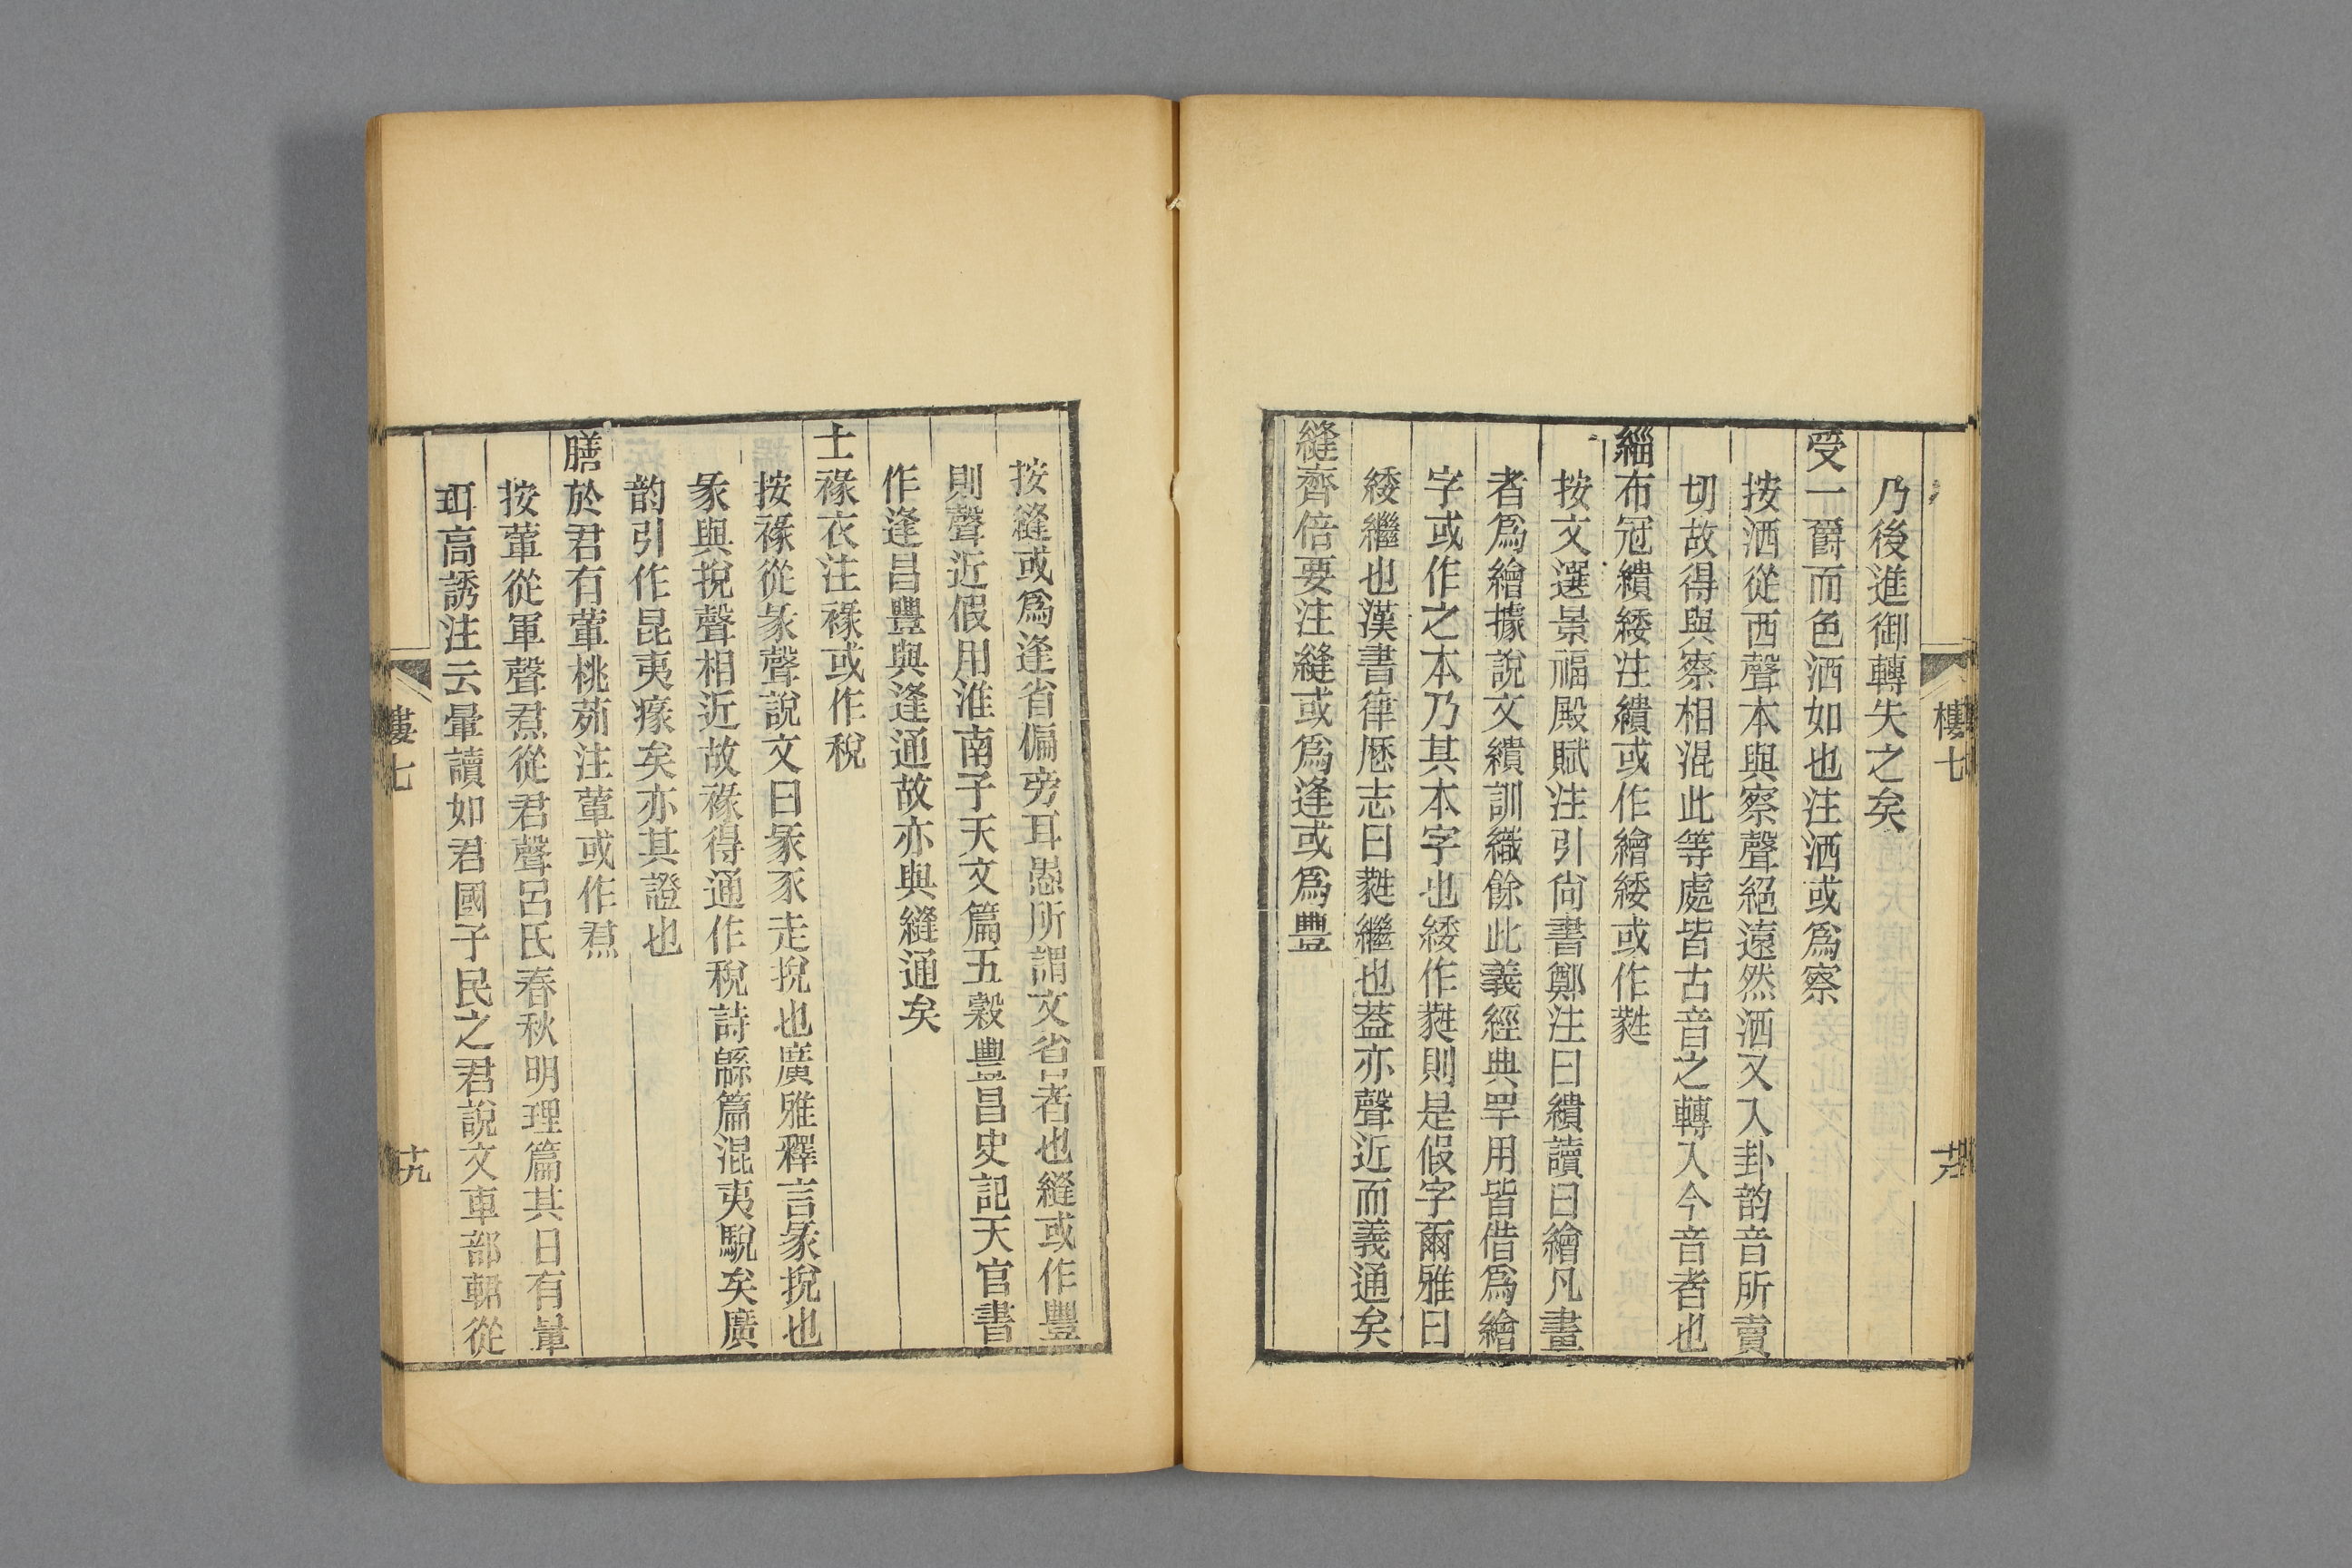 乃後進御轉失之矣
受一爵而色洒如也注洒或爲察
按洒從西聲本與察聲絕遠然洒又入卦韵音所賣
切故得與察相混此等處皆古音之轉入今音者也
緇布冠繢緌注繢或作繪緌或作蕤
按文選景福殿賦注引尙書鄭注曰繢讀曰繪凡畫
者爲繪據說文繢訓織餘此義經典罕用皆借爲繪
字或作之本乃其本字也緌作蕤則是假字爾雅曰
緌繼也漢書律厯志曰蕤繼也葢亦聲近而義通矣
縫齊倍要注縫或爲逢或爲豐
樓七
按縫或爲逢省偏旁耳愚所謂文省者也縫或作豐
則聲近假用淮南子天文篇五穀豐昌史記天官書
作逢昌豐與逢通故亦與縫通矣
士褖衣注褖或作稅
按褖從彖聲說文曰彖豕走挩也廣雅釋言彖挩也
彖與挩聲相近故褖得通作稅詩緜篇混夷駾矣廣
韵引作昆夷瘃矣亦其證也
膳於君有葷桃茢注葷或作焄
按葷從軍聲焄從君聲呂氏春秋明理篇其日有暈
珥高誘注云暈讀如君國子民之君說文車部輑從
樓七
十九